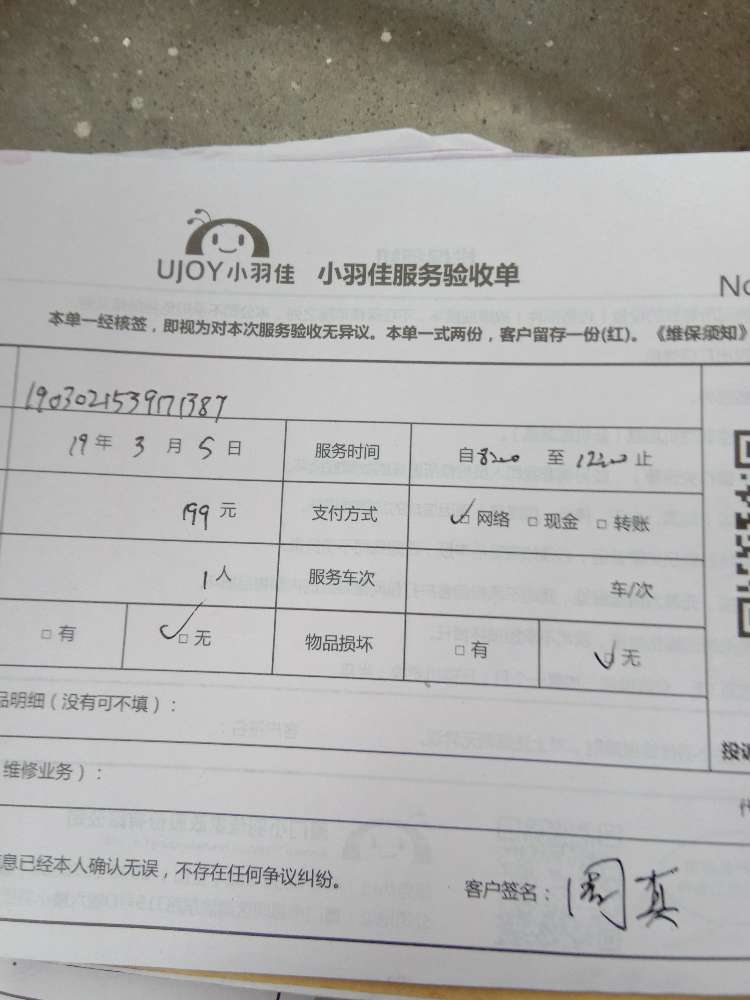 UJOY小羽佳 小羽佳服务验收单
No
本单一经核签，即视为对本次服务验收无异议。本单一式两份，客户留存一份(红)。《维保须知》
190302153971387
19年 3 月 5 日 服务时间 自8:00 至 12:00 止
199 元 支付方式 ☑网络 □现金 □转账
1人 服务车次 车/次
□有 ☑无 物品损坏 □有 ☑无
品明细（没有可不填）：
投诉
维修业务）：
息已经本人确认无误，不存在任何争议纠纷。
客户签名：周真